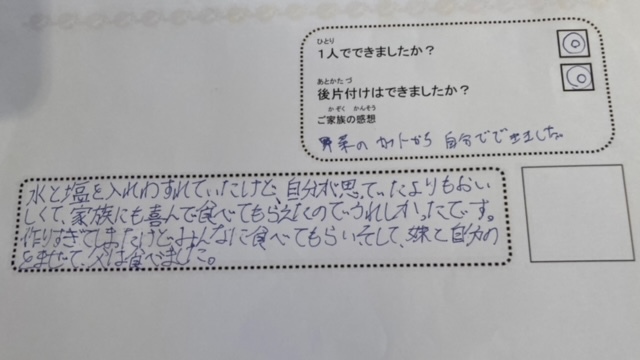 ひとり
1人でできましたか？
あとかたづ
後片付けはできましたか？
かぞく かんそう
ご家族の感想
野菜のカットから 自分でできました。
水と塩を入れわすれていたけど、自分が思っていたよりもおい
しくて、家族にも喜んで食べてもらえたのでうれしかったです。
作りすぎてしまったけど、みんなに食べてもらい、そして、妹と自分の
をまぜて、父は食べました。